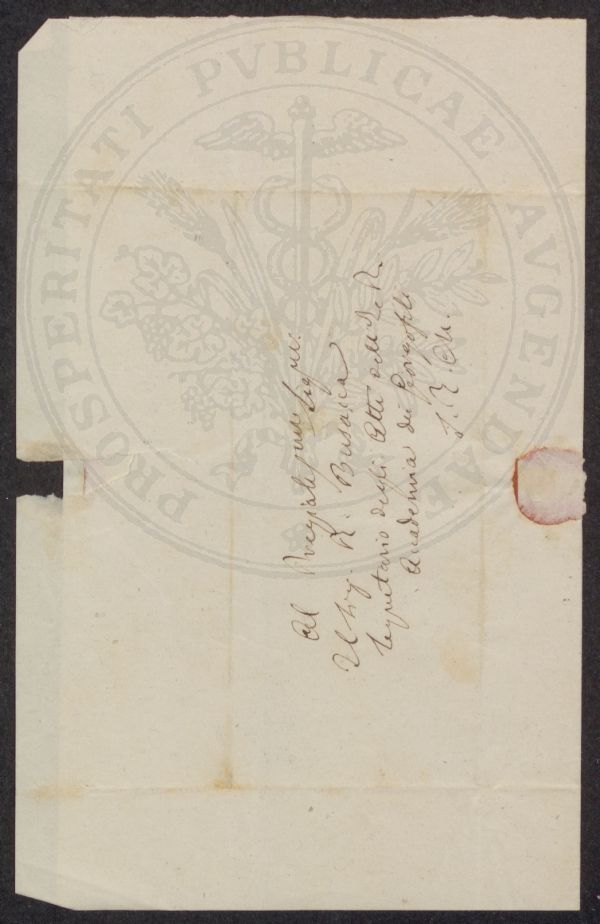 PROSPERITATI PVBLICAE AVGENDAE
Al Pregiatissimo Signre:
Il Sig. R. Busacca
Segretario degli Atti dell' I. e R.
Accademia dei Georgofili